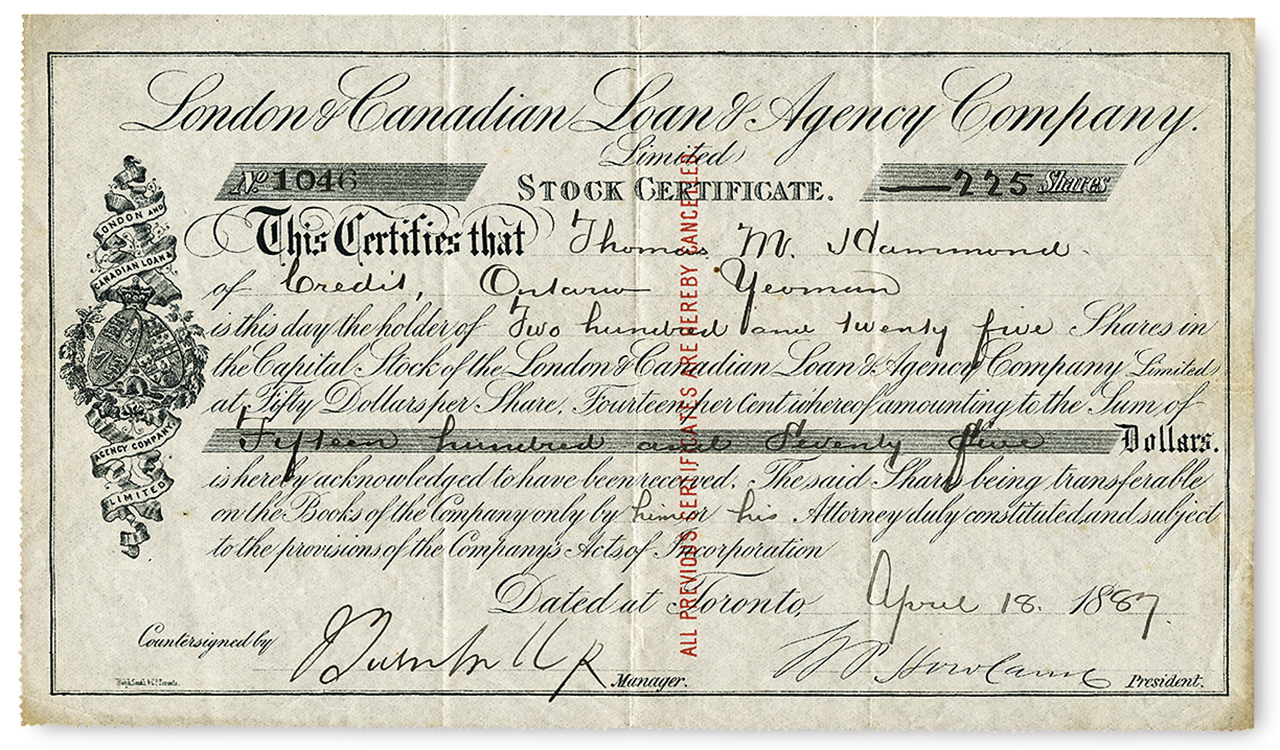 London & Canadian Loan & Agency Company.
Limited
No 1046
STOCK CERTIFICATE.
225 Shares
This Certifies that Thomas M. Hammond
of Credit, Ontario Yeoman
is this day the holder of Two hundred and twenty five Shares in
the Capital Stock of the London & Canadian Loan & Agency Company Limited
at Fifty Dollars per Share. Fourteen per Cent whereof amounting to the Sum of
Fifteen hundred and Seventy five Dollars.
is hereby acknowledged to have been received. The said Shares being transferable
on the Books of the Company only by him or his Attorney duly constituted, and subject
to the provisions of the Company's Acts of Incorporation
Dated at Toronto, April 18. 1887.
Countersigned by
Manager.
W P Howland President.
LONDON AND
CANADIAN LOAN &
AGENCY COMPANY
LIMITED
ALL PREVIOUS CERTIFICATES ARE HEREBY CANCELLED